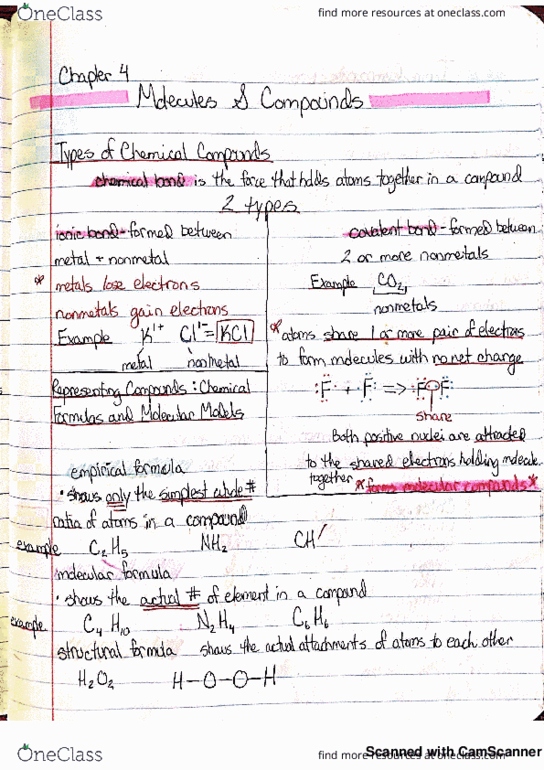 OneClass
find more resources at oneclass.com
Chapter 4
Molecules & Compounds
Types of Chemical Compounds
chemical bond is the force that holds atoms together in a compound
2 types
ionic bond - formed between
metal + nonmetal
* metals lose electrons
nonmetals gain electrons
Example K¹⁺ Cl¹⁻ = KCl
metal nonmetal
covalent bond - formed between
2 or more nonmetals
Example CO₂
nonmetals
* atoms share 1 or more pair of electrons
to form molecules with no net change
:F· + ·F: => :F F:
share
Both positive nuclei are attracted
to the shared electrons holding molecule
together *forms molecular compounds*
Representing Compounds: Chemical
Formulas and Molecular Models
empirical formula
· shows only the simplest whole #
ratio of atoms in a compound
example C₂H₅ NH₂ CH
molecular formula
· shows the actual # of element in a compound
example C₄H₁₀ N₂H₄ C₆H₆
structural formula shows the actual attachments of atoms to each other
H₂O₂ H-O-O-H
OneClass
find more resources at oneclass.com
Scanned with CamScanner